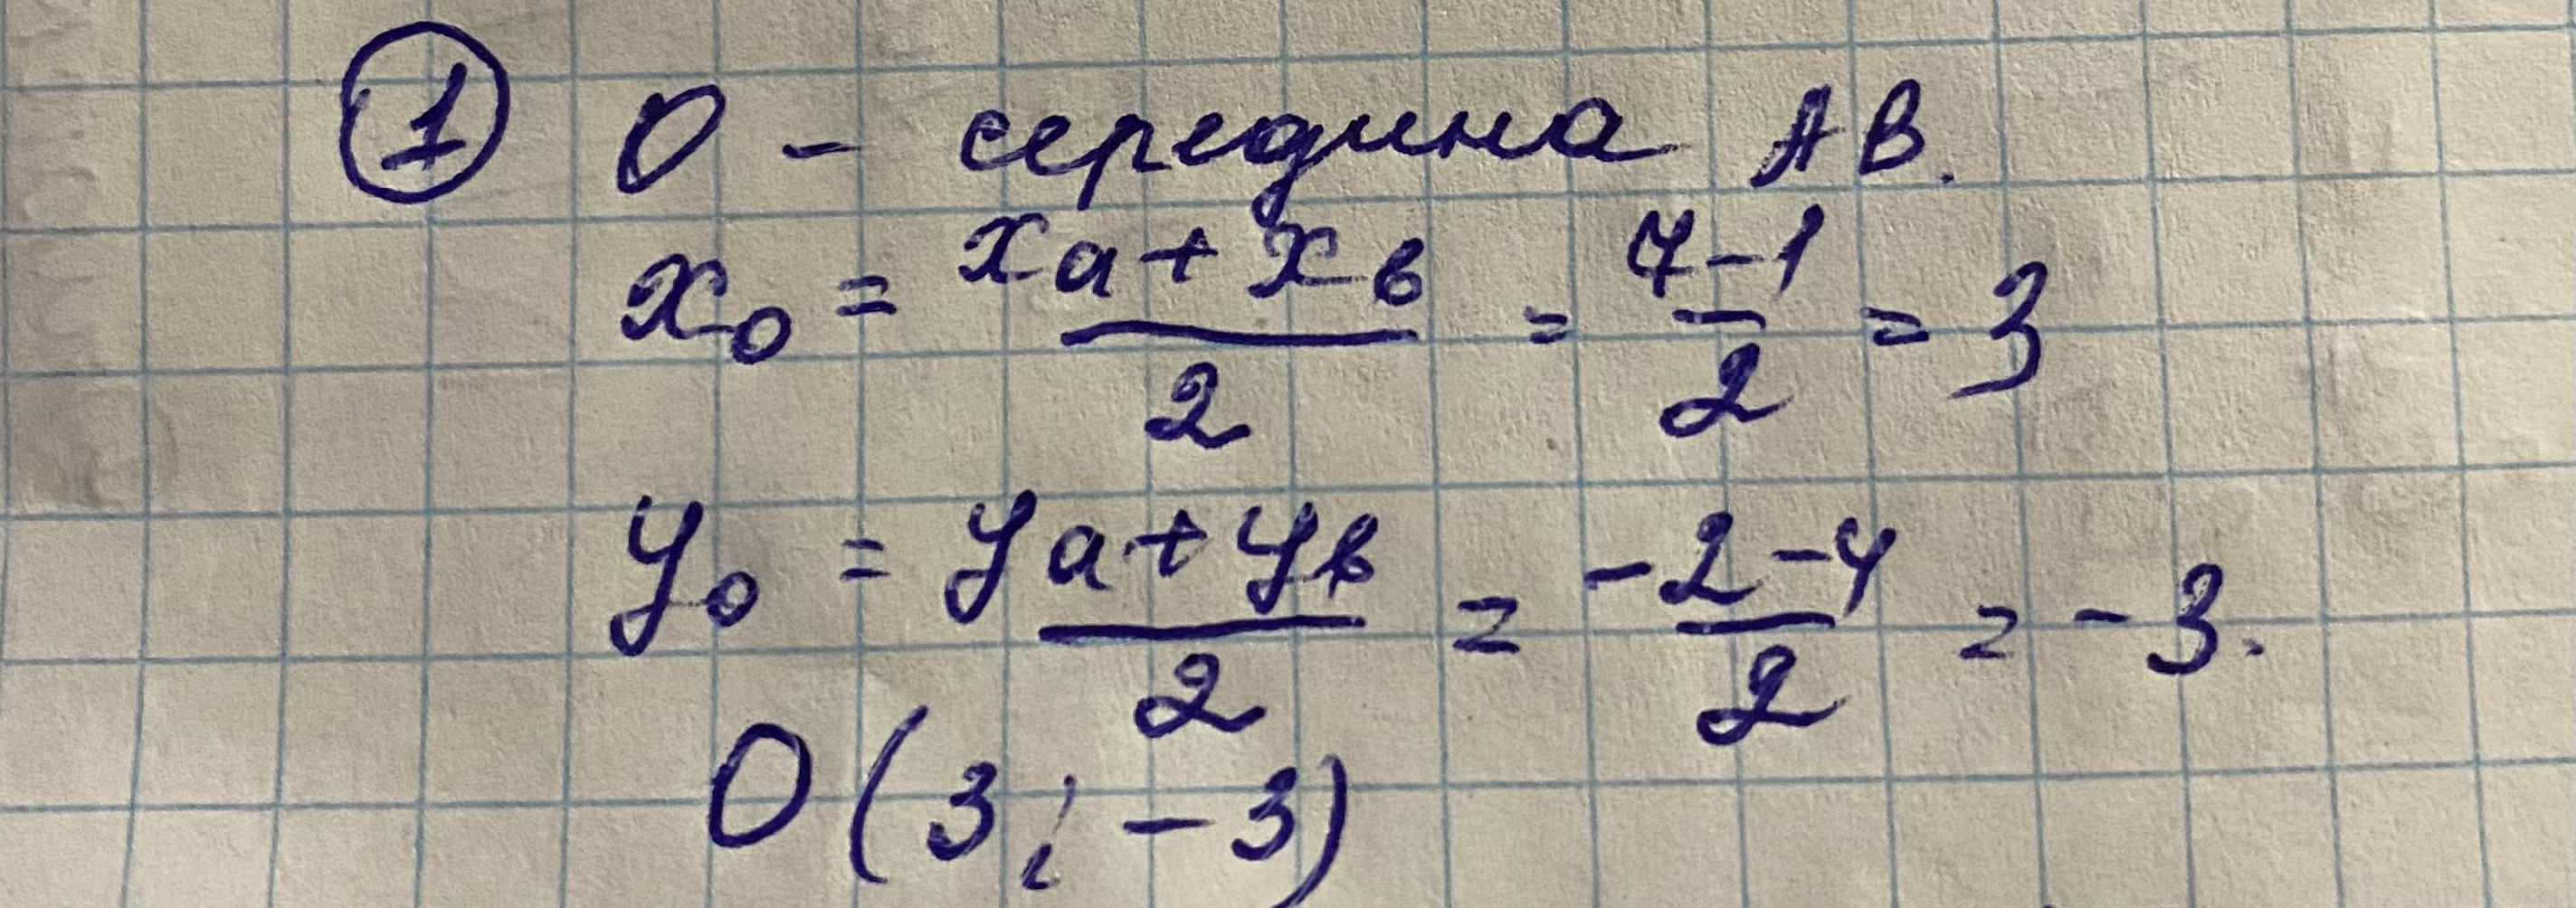 ① O - середина AB.
x₀ = (xa + xв)/2 = (7-1)/2 = 3
y₀ = (ya + yв)/2 = (-2-4)/2 = -3.
O (3; -3)